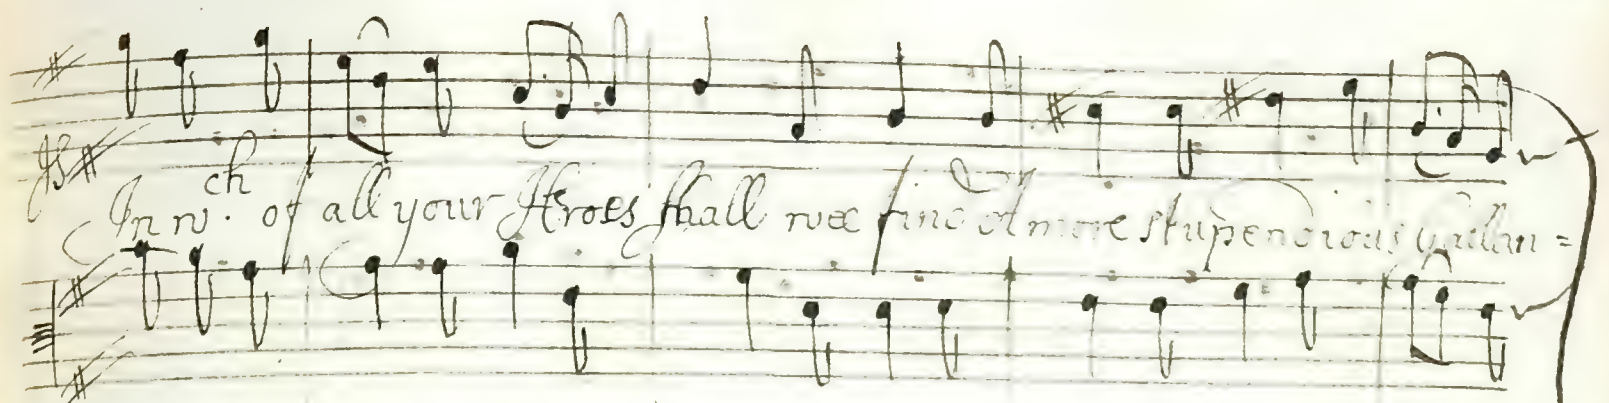 In wch. of all your Heroes shall wee find of more stupendious gallan=